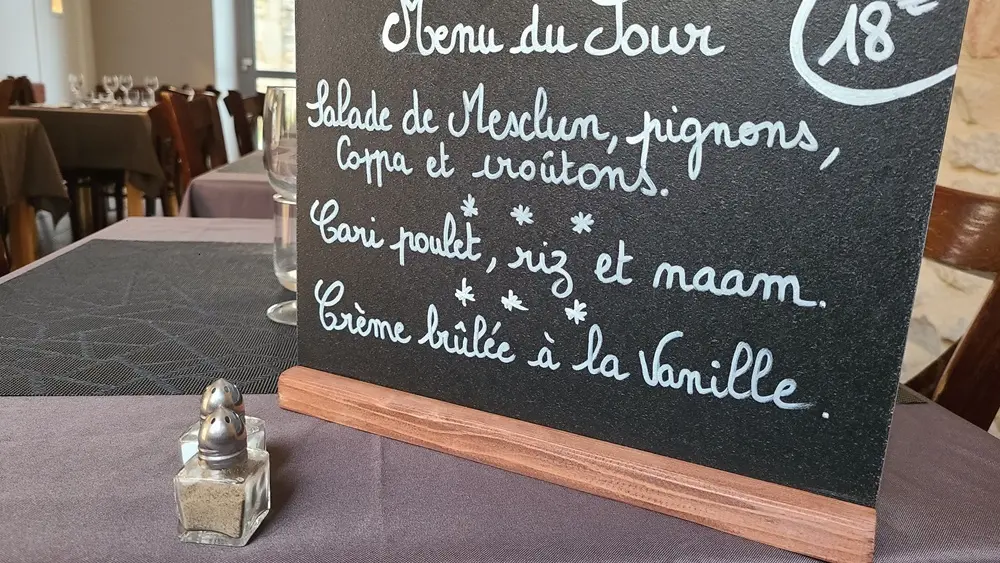 Menu du Jour
18€
Salade de Mesclun, pignons,
Coppa et croûtons.
* * *
Cari poulet, riz et naam.
* * *
Crème brûlée à la Vanille.